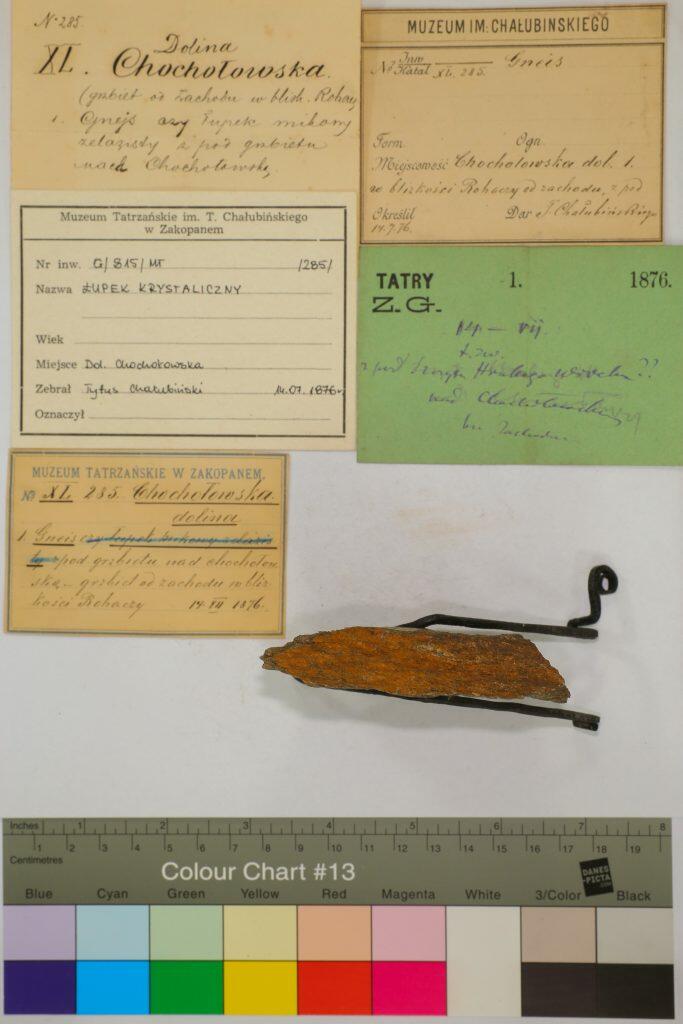 N. 285.
XL. Dolina
Chochołowska.
(grzbiet od Zachodu w blizk. Rohaczy
1. Gnejs czy łupek mikowy
żelazisty z pod grzbietu
nad Chochołowską
MUZEUM IM: CHAŁUBIŃSKIEGO
No Inw Katal XL. 285. Gneis
Form. Ogn.
Miejscowość Chochołowska dol. 1.
w blizkości Rohaczy od zachodu, z pod
Określił Dar T. Chałubińskiego
14.7.76.
Muzeum Tatrzańskie im. T. Chałubińskiego
w Zakopanem
Nr inw. G/815/MT /285/
Nazwa ŁUPEK KRYSTALICZNY
Wiek
Miejsce Dol. Chochołowska
Zebrał Tytus Chałubiński 14.07.1876r.
Oznaczył
TATRY 1. 1876.
Z. G.
VII.
t. zw.
z pod ??
nad Chochołowską
MUZEUM TATRZAŃSKIE W ZAKOPANEM.
No XL 285. Chochołowska
dolina
1. Gneis czy łupek mikowy żelazis
ty z pod grzbietu nad chochołow
ską – grzbiet od zachodu w bliz
kości Rohaczy 14 VII 1876.
Inches 1 2 3 4 5 6 7 8
Centimetres 1 2 3 4 5 6 7 8 9 10 11 12 13 14 15 16 17 18 19
Colour Chart #13
DANES-PICTA.COM
Blue Cyan Green Yellow Red Magenta White 3/Color Black